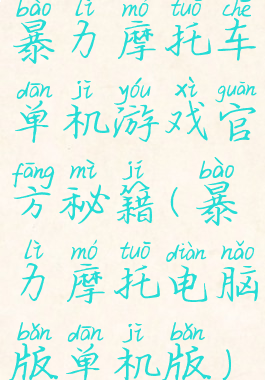 bào lì mó tuō chē
暴力摩托车
dān jī yóu xì guān
单机游戏官
fāng mì jí bào
方秘籍(暴
lì mó tuō diàn nǎo
力摩托电脑
bǎn dān jī bǎn
版单机版)